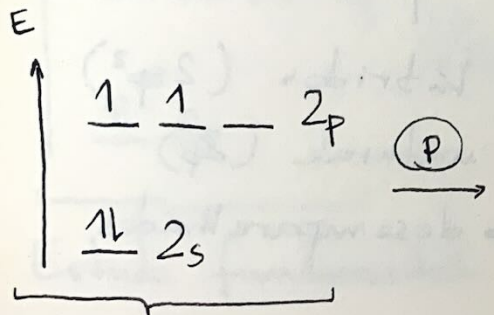 E
1 1 2p
P
1l 2s